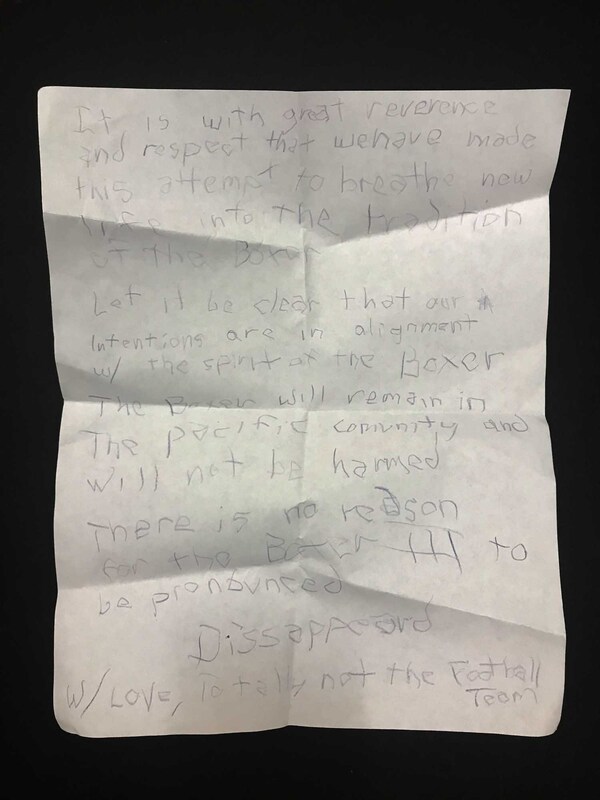 It is with great reverence
and respect that wehave made
this attempt to breathe new
life into the tradition
of the Boxer
Let it be clear that our
Intentions are in alignment
w/ the spirit of the Boxer
The Boxer will remain in
The pacific community and
will not be harmed
There is no reason
for the Boxer III to
be pronounced
Dissappeard
w/ LOVE, Totally not the Football
Team